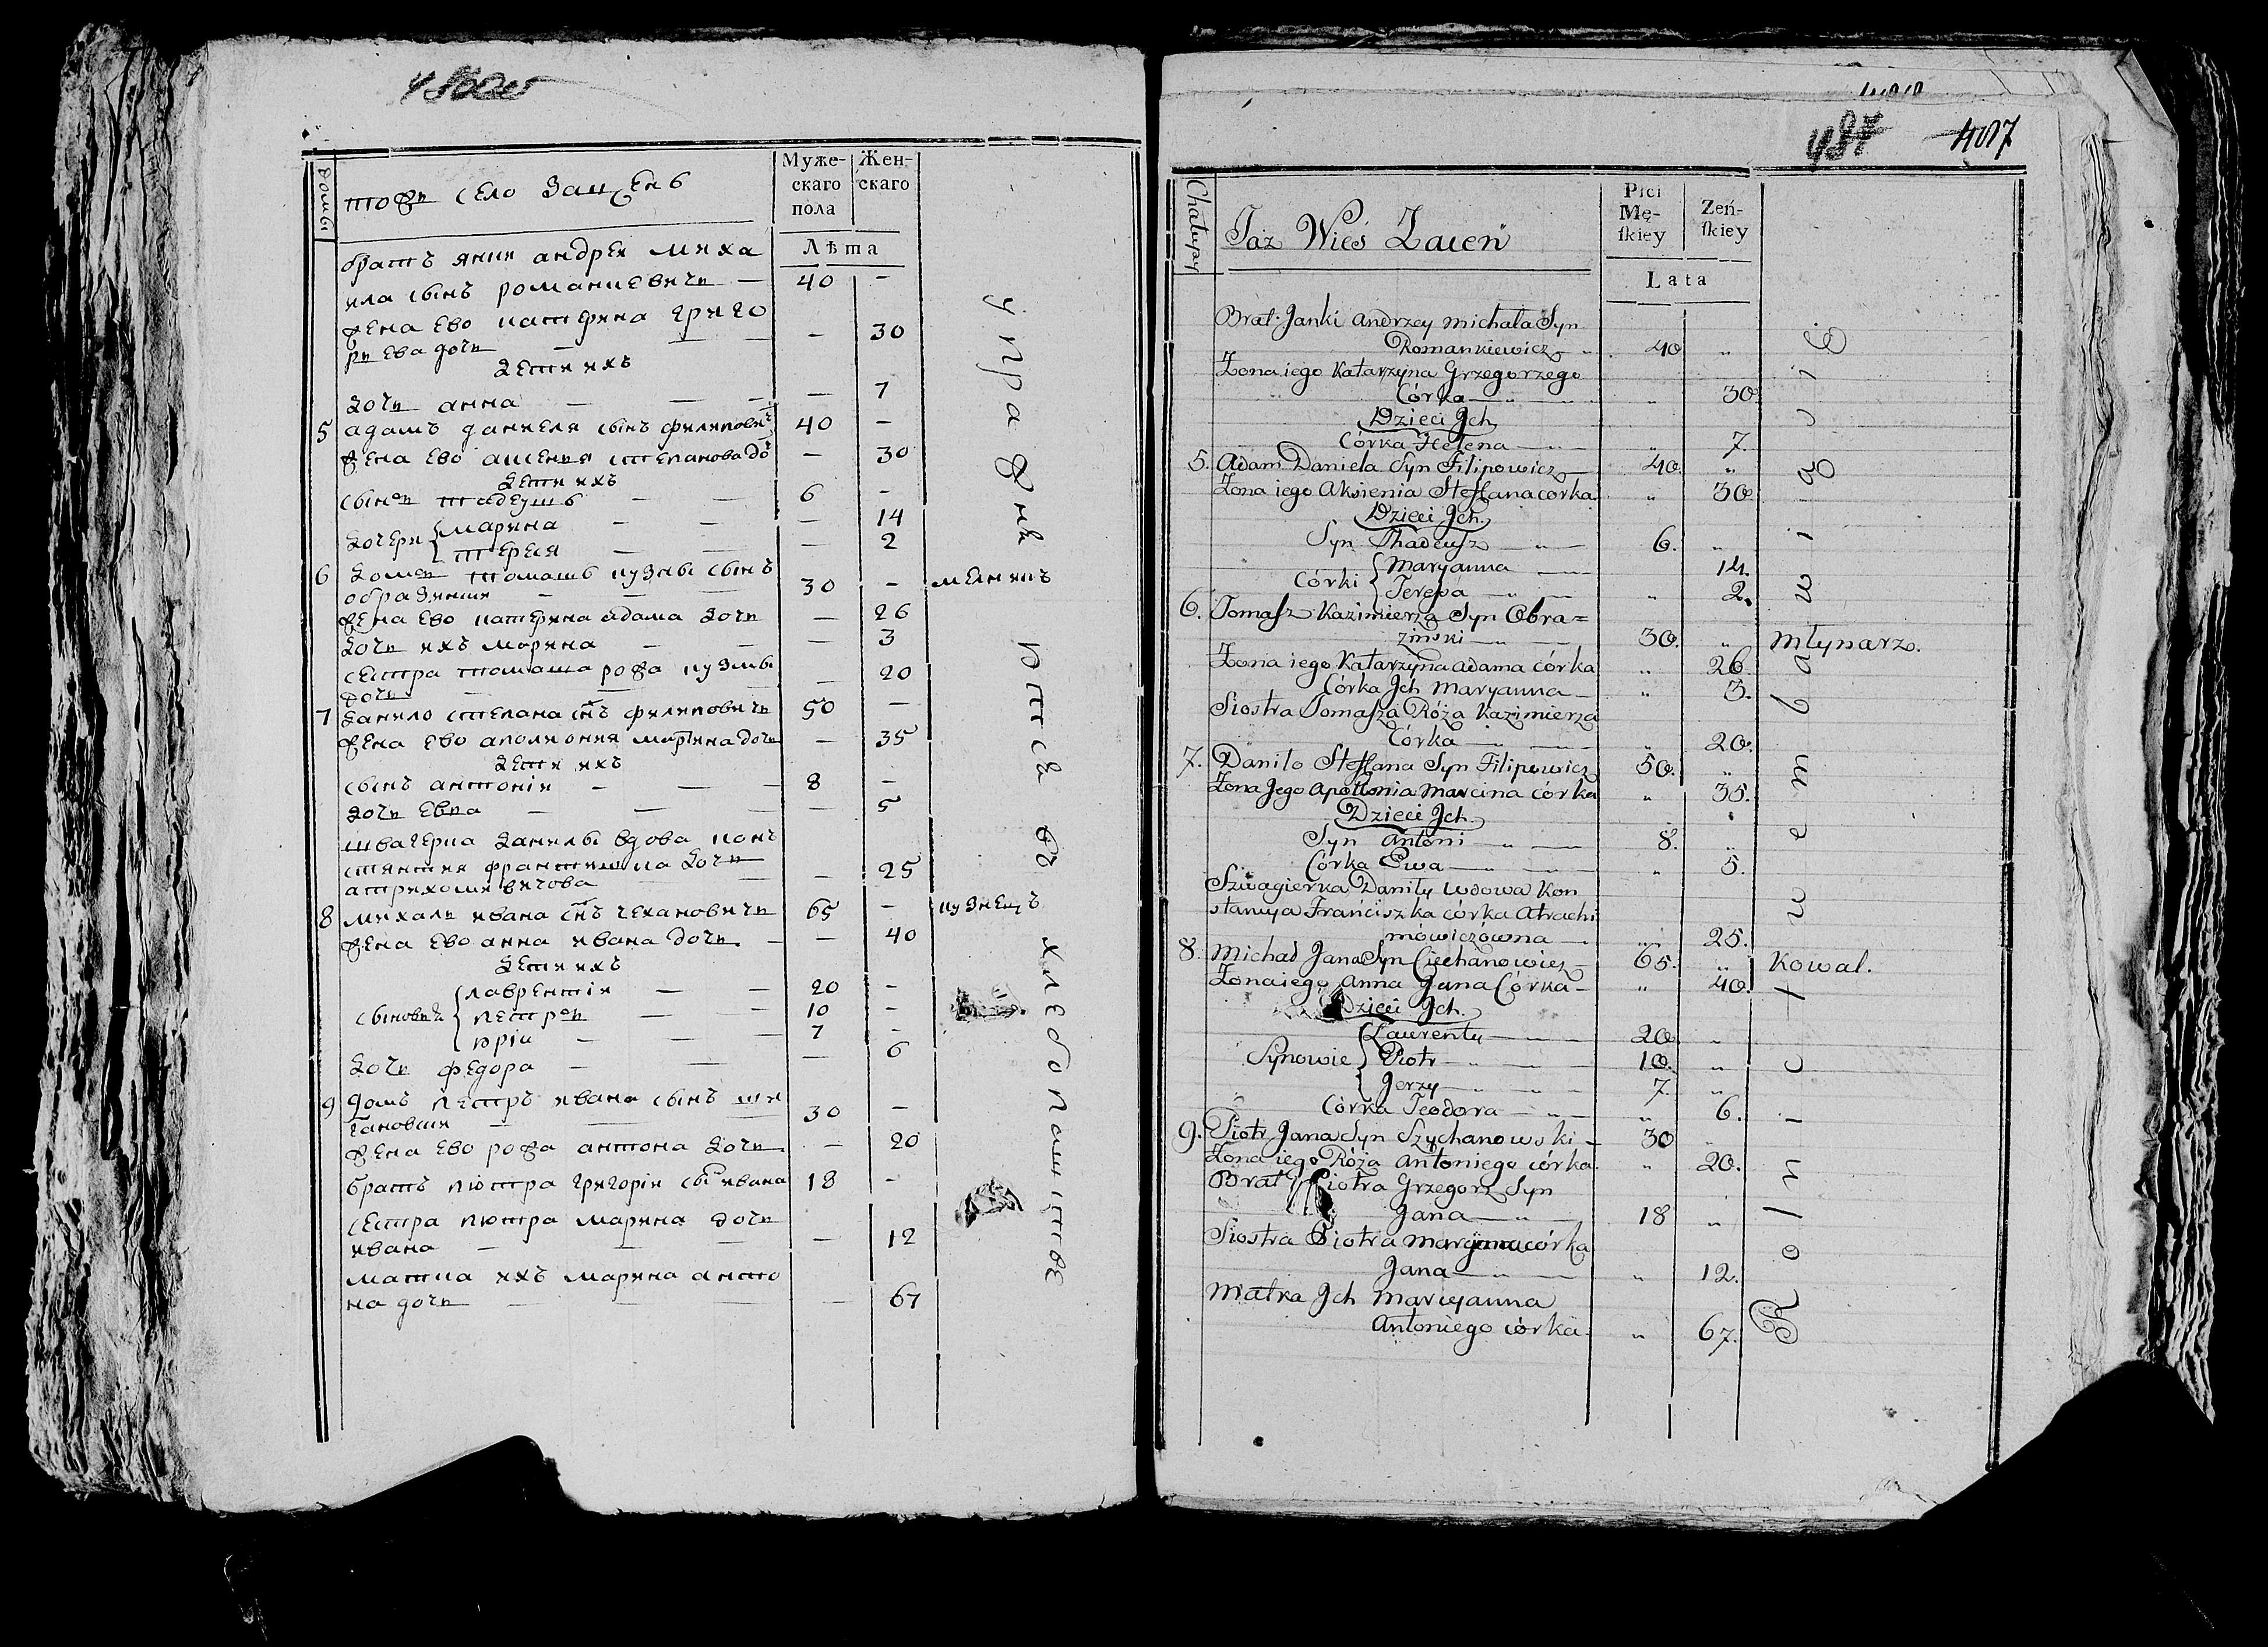 домы
тожъ село Зацень
Муже-
скаго
пола
Жен-
скаго
Лѣта
братъ янки андрей миха
ила сынъ романкевичъ — 40 -
жена ево катерина григо
рьева дочь — — — 30
дети ихъ
дочь анна — — — — 7
5 адамъ даниеля сынъ филиповичъ 40 -
жена ево аксенья степанова до — 30
дети ихъ
сынъ тадеушь — — 6 -
дочери { марина — — — 14
тереса — — — 2
6 домъ томашь кузмы сынъ
образински — — — 30 - мелникъ
жена ево катерина адама дочь — 26
дочь ихъ марина — — — 3
сестра томаша рожа кузмы — 20
дочь — — —
7 данило степана снъ филиповичъ 50 -
жена ево аполиония мартина дочь — 35
дети ихъ
сынъ антоній — — — 8 -
дочь евка — — — — 5
швагерка данилы вдова конъ
станция францишка дочь — 25
атрихомивичова —
8 михаль ивана снъ чехановичъ 65 - кузнецъ
жена ево анна ивана дочь — — 40
дети ихъ
сыновья { лаврентій — — 20 -
петръ — — 10 -
юрій — — 7 -
дочь федора — — — 6
9 домъ петръ ивана сынъ ши
гановски — — 30 -
жена ево рожа антона дочь — 20
братъ пютра григорій сы ивана 18 -
сестра пютра марина дочь
ивана — — — — 12
матка ихъ марина анто
на дочь — — — — 67
упражняются въ хлебопашстве
487 407
Chałupy
Taż Wieś Zaceń
Płci
Mę-
ſkiey
Żeń-
ſkiey
Lata
Brat Janki Andrzey Michała Syn
Romankiewicz „ 40 „
Żona iego Katarzyna Grzegorzego
Córka — „ — „ 30
Dzieci Jch
Córka Helena — „ — „ 7.
5. Adam Daniela Syn Filipowicz — 40. „
Żona iego Aksienia Steffana corka. „ 30
Dzieci Jch.
Syn Thadeuſz — „ — 6. „
Córki { Maryanna — — „ 14.
Tereſsa — „ — „ 2.
6. Tomaſz Kazimierza Syn Obra=
ziński — „ — 30. „ Młynarz.
Żona iego Katarzyna Adama córka „ 26.
Córka Jch Maryanna — „ 3.
Siostra Tomaſza Róża Kazimierza
Córka — „ — „ 20.
7. Daniło Steffana Syn Filipowicz 50. „
Żona Jego Apollonia Marcina córka „ 35.
Dzieci Jch.
Syn Antoni — „ — 8. „
Córka Ewa — „ — „ 5.
Szwagierka Daniły Wdowa Kon
stancya Franciszka córka Atrachi
mówiczówna — „ 25.
8. Michał Jana Syn Ciechanowicz — 65. „ Kowal.
Żona iego Anna Jana Córka — „ 40.
Dzieci Jch.
Synowie { Laurenty — „ — 20. „
Piotr — „ — 10. „
Jerzy — „ — 7. „
Córka Teodora — „ — „ 6.
9. Piotr Jana Syn Szychanowski — 30 „
Żona iego Róża Antoniego córka. „ 20.
Brat Piotra Grzegorz Syn
Jana — „ — 18 „
Siostra Piotra Maryana córka
Jana — „ — „ 12.
Matka Jch Maryanna
Antoniego córka. „ 67.
Rolnictwem bawią się